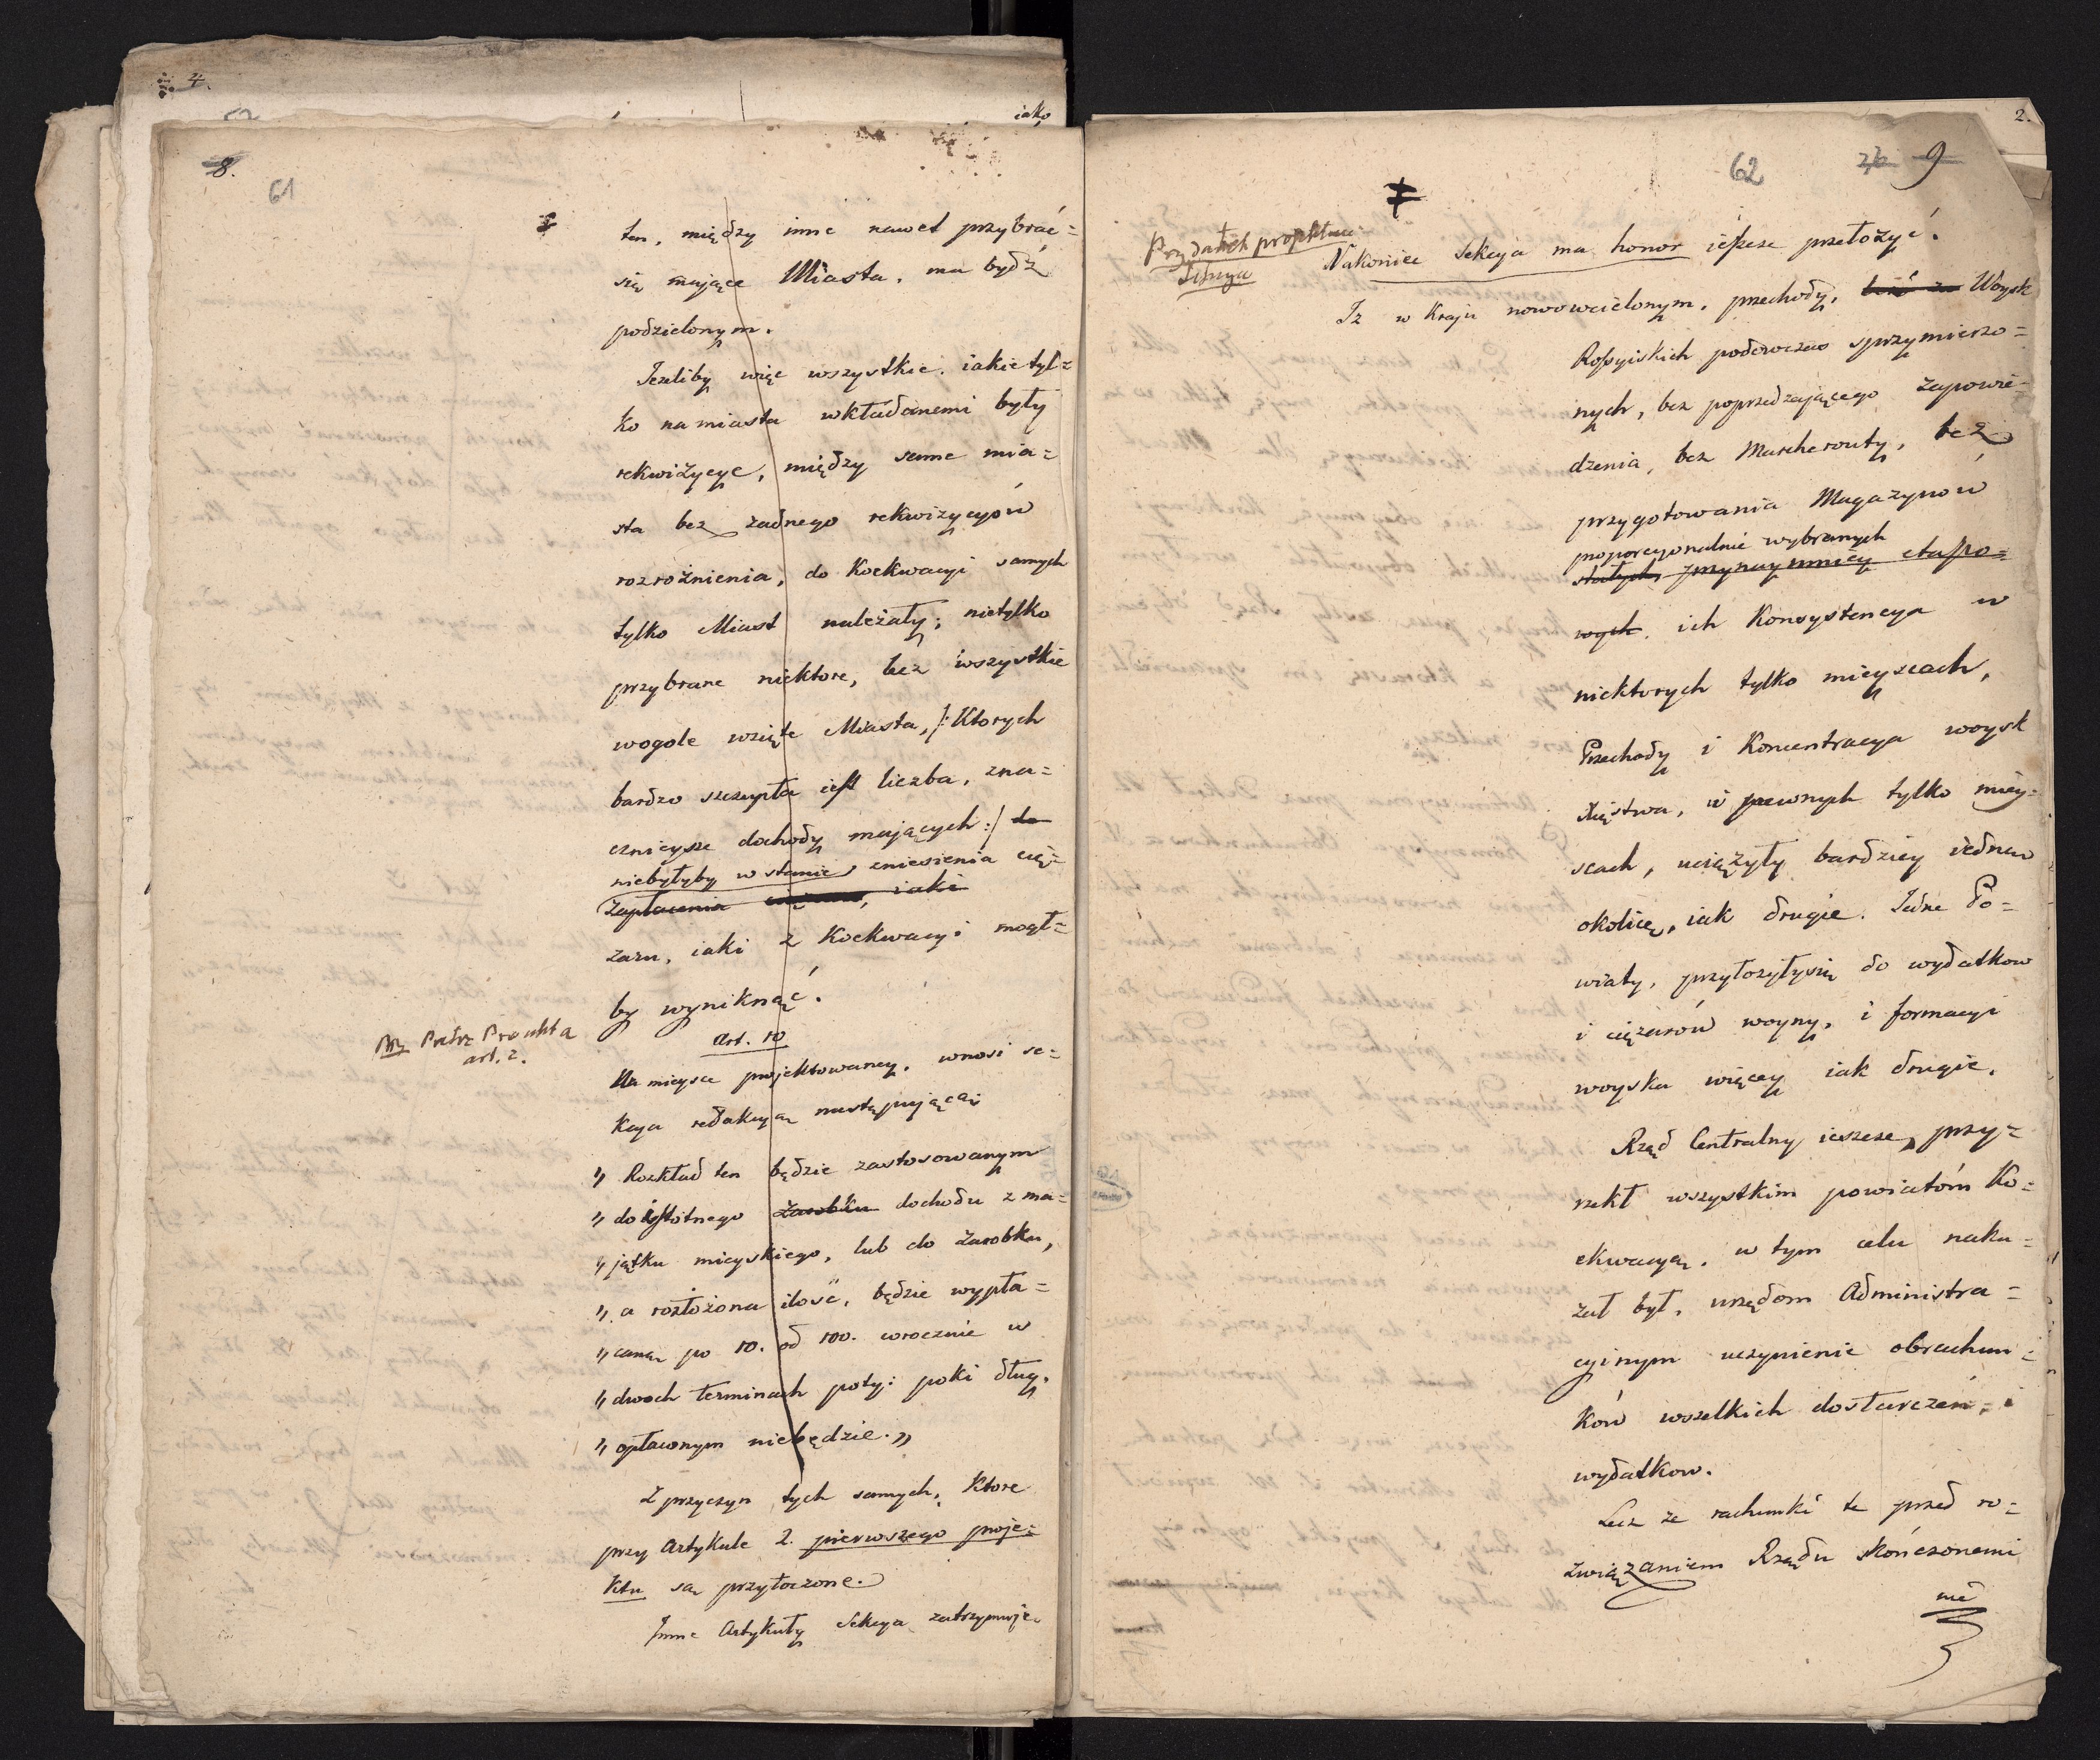 4.
52
iako
8.
61
ten, między inne nawet przybrać=
się mające Miasta, ma bydź
podzielonym.
Jeżeliby więc wszystkie, iakietyl=
ko na miasta wkładanemi były
rekwizycye, między same mia=
sta bez żadnego rekwizycyów
rozrożnienia, do Koekwacyi samych
tylko Miast należały; nietylko
przybrane niektore, lecz wszystkie
wogole wzięte Miasta, /: Ktorych
bardzo szczupła iest liczba, zna=
cznieysze dochody mających :/ do
niebyłyby w stanie, zniesienia cię=
zapłacenia, iaki
żaru, iaki z Koekwacyi mogł=
by wyniknąć.
Art. 10
Na mieysce projektowaney, wnosi se=
kcya redakcyą następującą:
" Rozkład ten będzie zastosowanym
" do istotnego zarobku dochodu z ma=
" jątku mieyskiego, lub do zarobku,
" a rozłożona ilość, będzie wypła=
" caną po 10. od 100. wrocznie w
" dwoch terminach poty: poki dług,
" opłaconym niebędzie. "
Z przyczyn tych samych, ktore
przy Artykule 2. pierwszego proje=
ktu są przytoczone.
Inne Artykuły Sekcya zatrzymuje.
art. 2.
2.
62
9
Nakoniec Sekcya ma honor ieszcze przełożyć.
Iż w Kraju nowowcielonym, przechody, Woysk
Rossyiskich podowczas sprzymierzo=
nych, bez poprzedzającego zapowie=
dzenia, bez Marcherouty, bez
przygotowania Magazynów
proporcyonalnie wybranych
stałych, przynaymniey etapo=
wych, ich Konsystencya w
niektorych tylko mieyscach,
Przechody i Koncentracya woysk
Xięstwa, w pewnych tylko miey=
scach, uciążyły bardziey iedne
okolice, iak drugie. Jedne Po=
wiaty, przyłożyły się do wydatkow
i ciężarów woyny, i formacyi
woyska więcey iak drugie.
Rząd Centralny ieszcze, przy=
rzekł wszystkim powiatóm Ko=
ekwacyą, w tym celu naka=
zał był, urzędom Administra=
cyinym uczynienie obrachun=
ków wszelkich dostarczeń, i
wydatkow.
Lecz że rachunki te przed ro=
związaniem Rządu skończonemi
nie